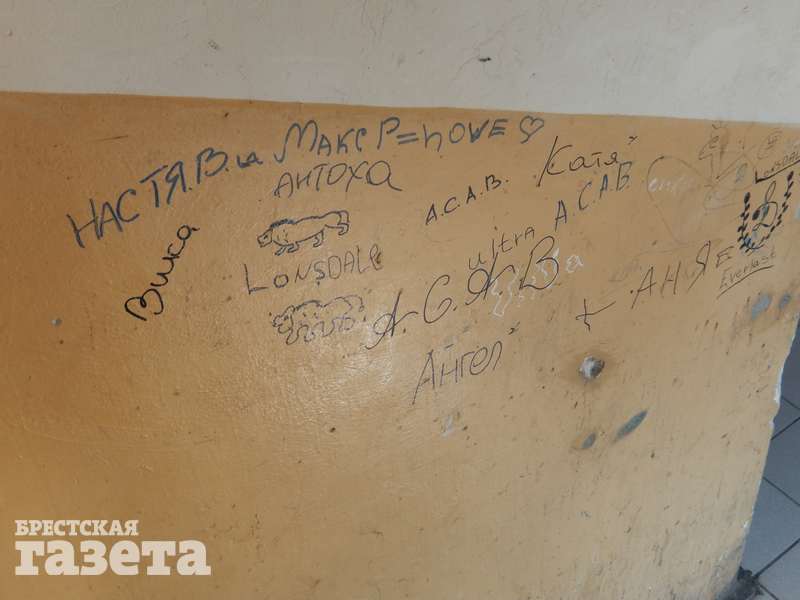 НАСТЯ.В. и МАКС Р = LOVE
АНТОХА
А.С.А.В. Катя
Вика
LONSDALE
ultra А.С.А.В.
А.С.А.В
+ АНЯ
Ангел
LONSDALE
Everlast
БРЕСТСКАЯ
газета